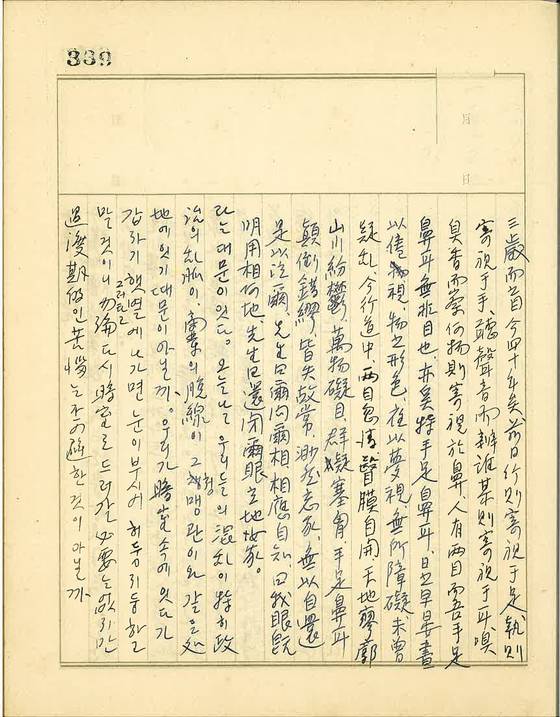 三歲而盲今四十年矣前日行則寄視于足執則
寄視于手、聽聲音而辨誰某則寄視于耳、嗅
臭香而察何物則寄視於鼻、人有兩目而吾手足
鼻耳無非目也、亦奚特手足自鼻耳、日之早晏晝
以倦視 物之形色、夜以夢視、無所障礙、未曾
疑乱、今行道中、両目忽淸瞖膜自開天地廖廓
山川紛鬱、萬物礙目群疑塞胷手足鼻耳
顚倒錯謬皆失故常、渺然忘家、無以自還
是以泣爾、先生曰爾問爾相相應自知、曰我眼旣
明用相何地先生曰還閉爾眼立地汝家。
라는 대문이 잇다. 오늘날 우리들의 混乱이 特히 政
治의 乱脈이, 商業의 脫線이 그 맹관이와 같은 処
地에 잇기 때문이 아닐까。우리가 暗室 속에 잇다가
갑자기 해볕에 나가면 눈이 부시어 허둥지둥 할
말 것이니 그러므로 勿論 다시 暗室로 드러갈 必要는 없지만
過渡期的인 苦惱는 不可避한 것이 아닐까
339
月 日
月 日